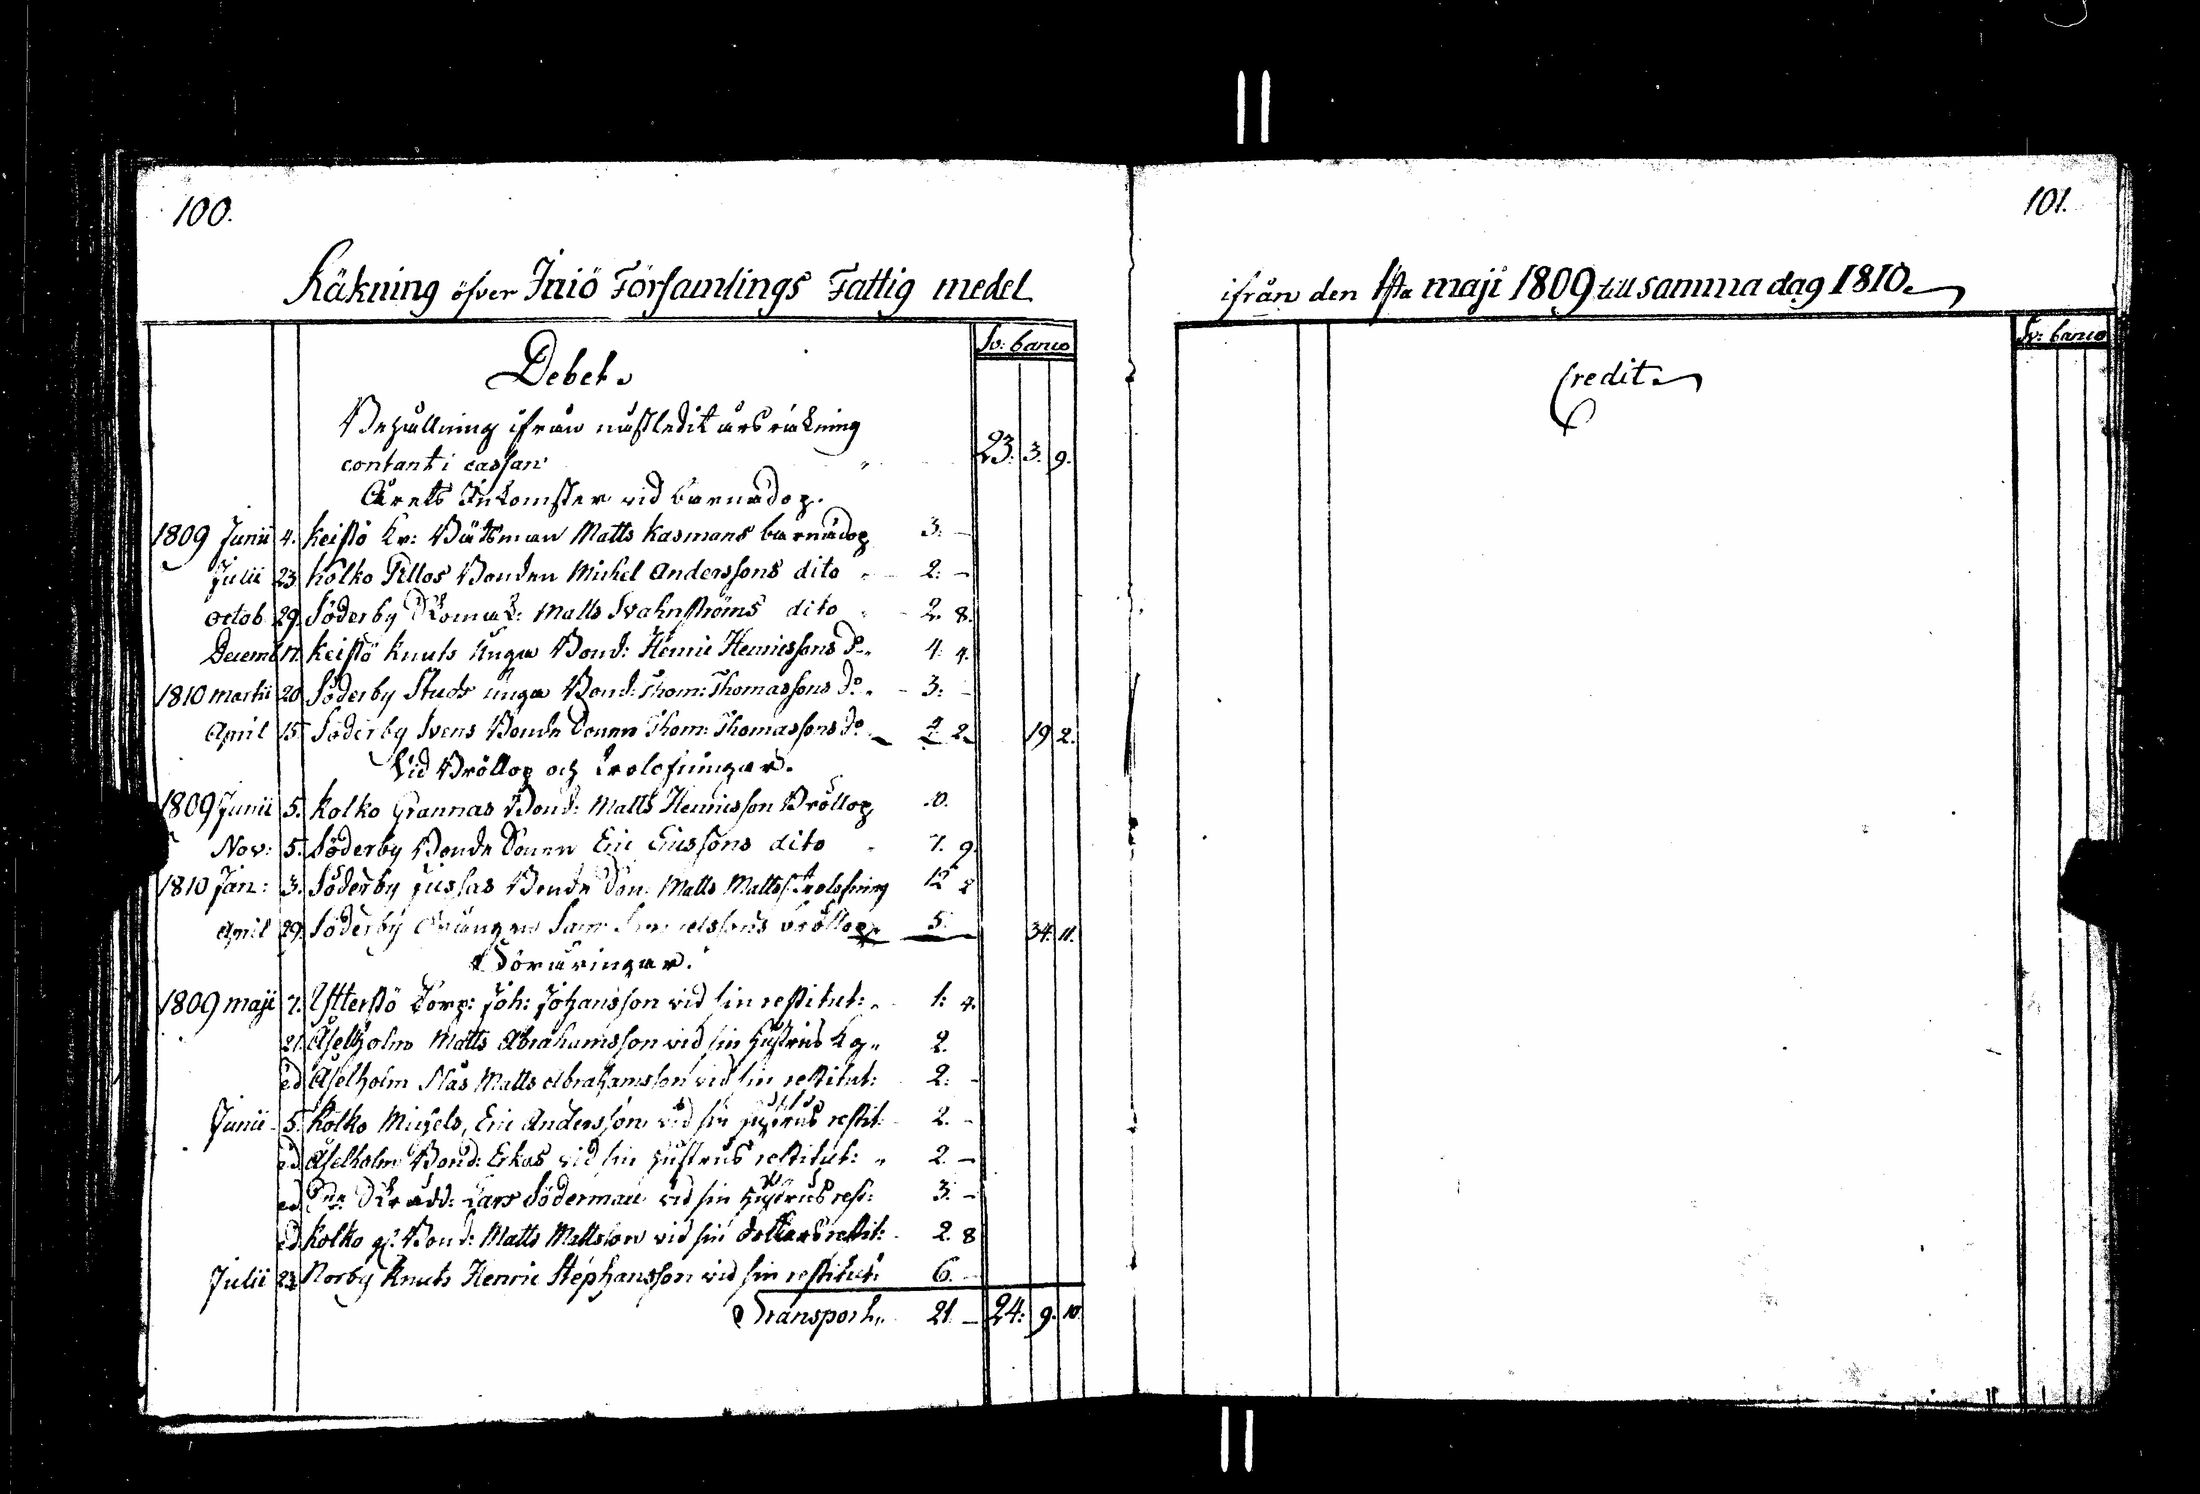 100.
Räkning öfver Iniö Församlings Fattig medel
Sv: banco
Debet.
Behållning ifrån nästledit års räkning
contant i cassan 23. 3. 9.
Årets Inkomster vid barnadop.
1809 Junii 4. Keistö Kr: Båtsman Matts Kasmans barnadop 3. –
Julii 23 Kolko Tellos Bonden Michel Anderssons dito 2. –
Octob. 29. Söderby Matts Svahnströms dito 2. 8.
Decemb 17. Keistö Knuts unga Bond: Henric Henricssons do 4. 4.
1810 Martii 20 Söderby unga Bond: Thom: Thomassons do 3. –
April 15. Söderby Svens Bonde Sonen Thom: Thomassons do 2 19 2.
Vid Bröllop och Trolofningar.
1809 Junii 5. Kolko Grannas Bond: Matts Henricsson Bröllop
Nov: 5. Söderby Bonde Sonen Eric Ericssons dito 7. 9.
1810 Jan: 3. Söderby Jussas Bonde Son: Matts Mattss: Trolofning 12
April 29. Söderby bröllop 5. 34. 11.
Föräringar.
1809 Maji 7. Torp: Joh: Johansson vid sin restitut: 1. 4.
21. Åselholm Matts Abrahamsson vid sin hustrus 2.
ed Åselholm Matts Abrahamsson vid sin restitut: 2. –
Junii 5. Kolko Michels, Eric Andersson vid sin hustrus restit: 2. –
ed Åselholm Bond: Erkas vid sin hustrus restitut: 2 –
ed Lars Söderman vid sin hustrus rest: 3. –
ed Kolko Bond: Matts Mattsson vid sin dotters restit: 2. 8
Julii 23 Norby Knuts Henric Stephansson vid sin restitut: 6. –
Transport 21. – 24. 9. 10.
101.
ifrån den 1sta maji 1809 till samma dag 1810.
Sv: banco
Credit.